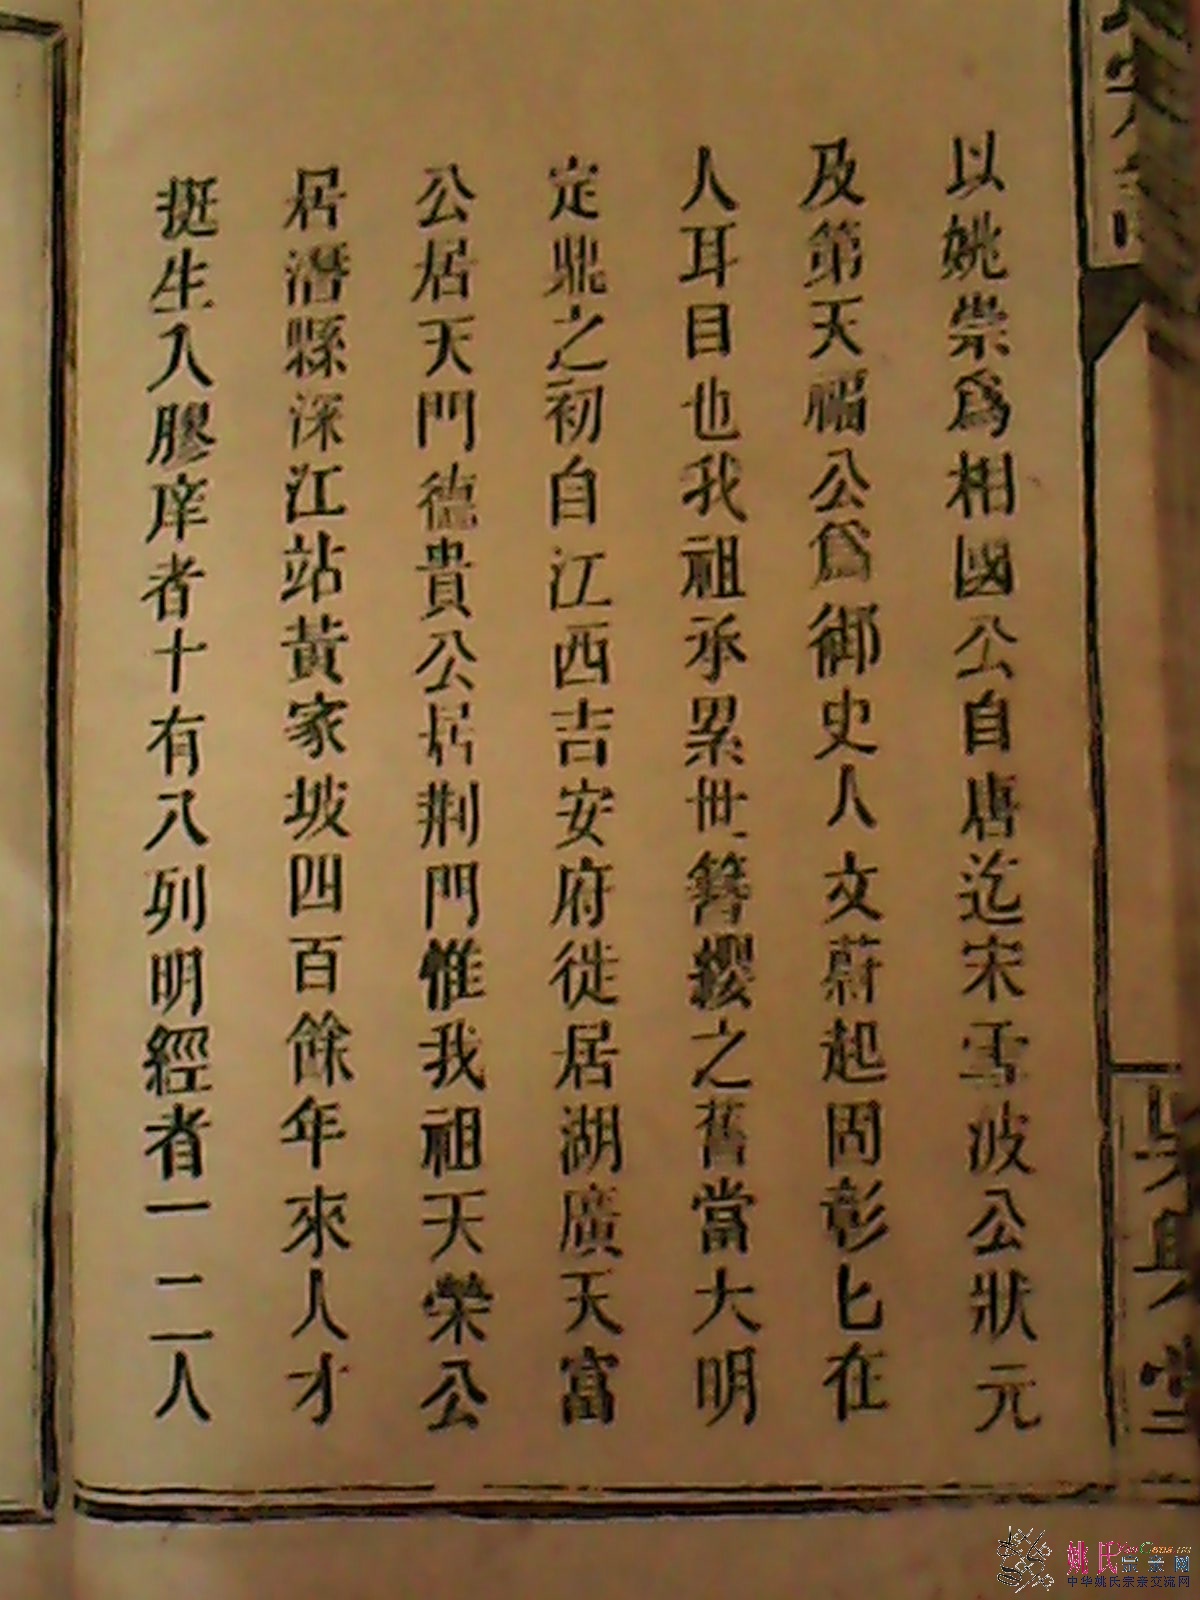 以姚崇爲相國公自唐迄宋雪波公狀元
及第天福公爲御史人文蔚起固彰匕在
人耳目也我祖承累世簪纓之舊當大明
定鼎之初自江西吉安府徙居湖廣天富
公居天門德貴公居荆門惟我祖天榮公
居潛縣深江站黃家坡四百餘年來人才
挺生入膠庠者十有八列明經者一二人
姚氏宗亲网
中华姚氏宗亲交流网